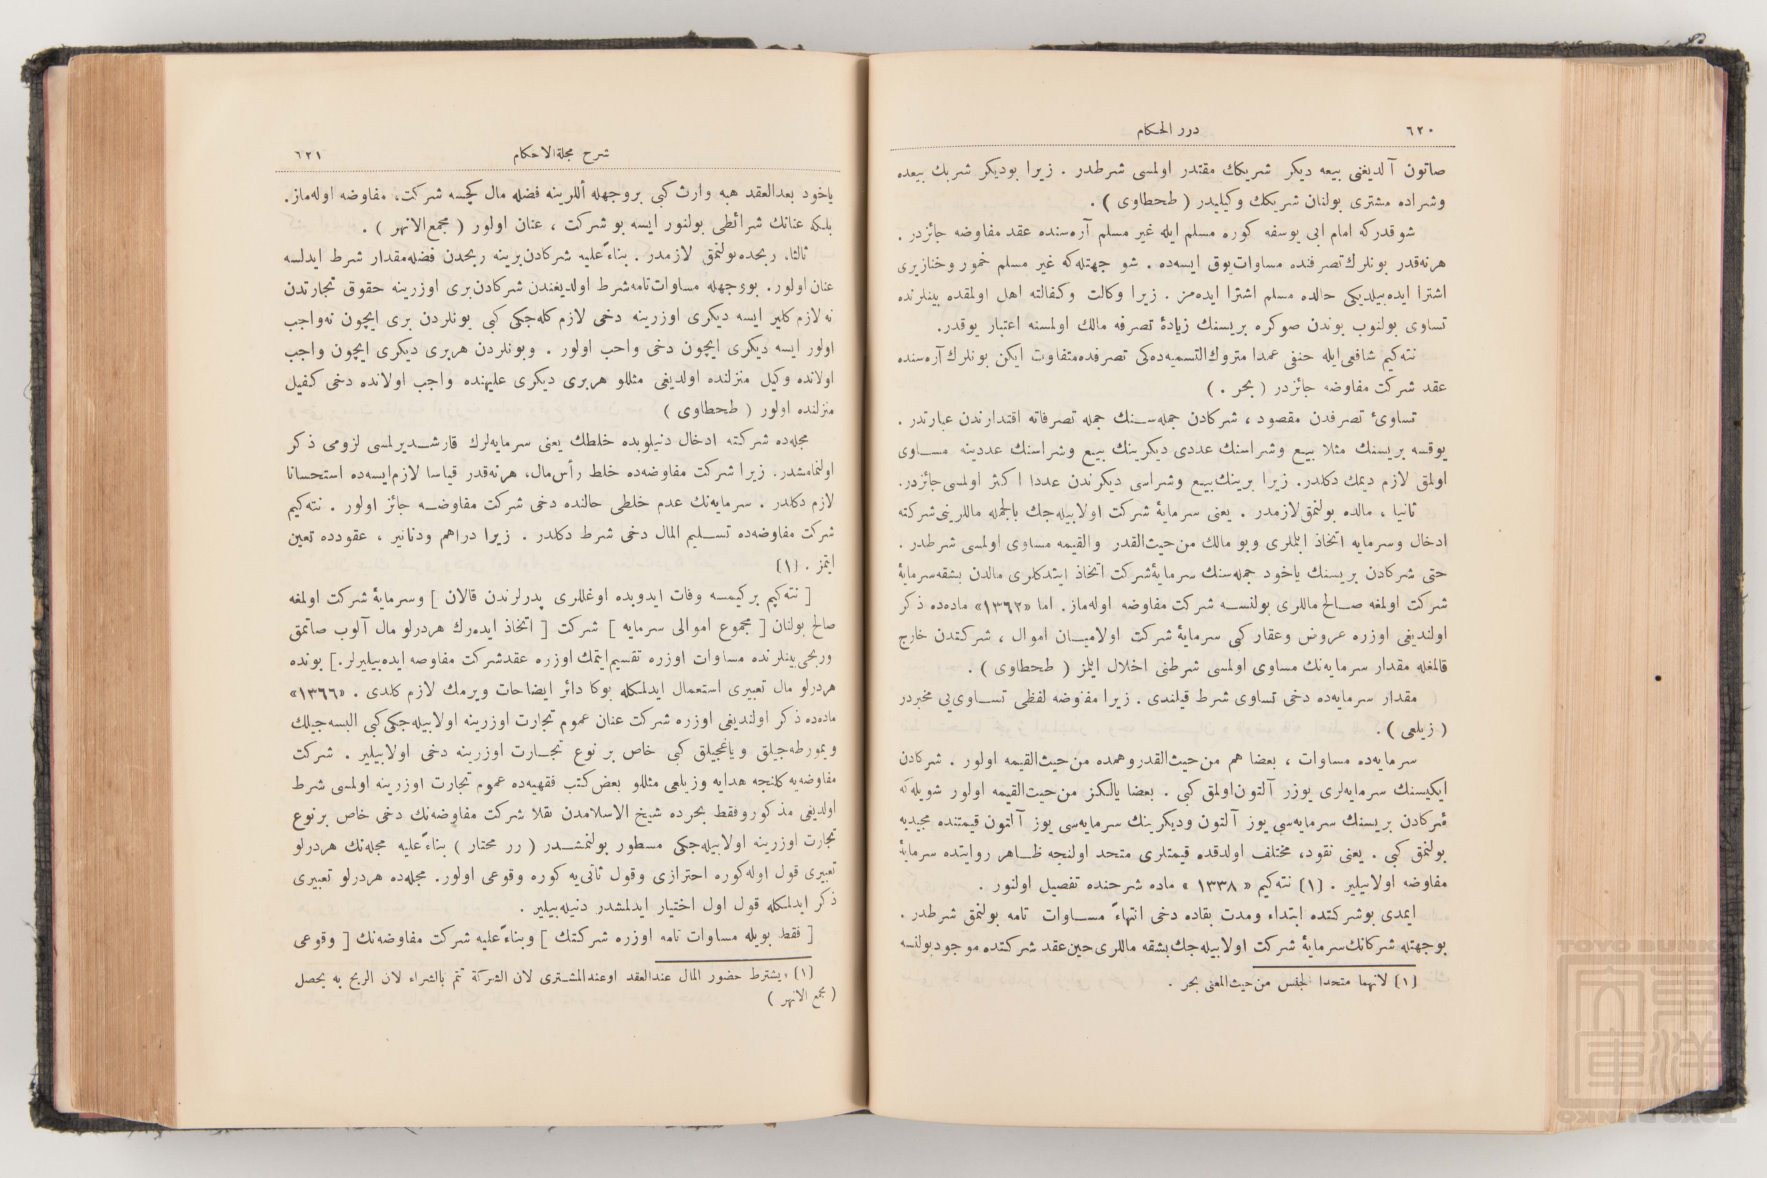 ٦٢٠
درر الحكام
صاتون آلديغى بيعه ديكر شريكك مقتدر اولمسى شرطدر . زيرا بوديكر شريك بيعده
وشراده مشترى بولنان شريكك وكيليدر ( طحطاوى ) .
شو قدركه امام ابى يوسفه كوره مسلم ايله غير مسلم آره‌سنده عقد مفاوضه جائزدر .
هرنه‌قدر بونلرك تصرفنده مساوات يوق ايسه‌ده . شو جهتله‌كه غير مسلم خمور وخنازيرى
اشترا ايده‌بيلديكى حالده مسلم اشترا ايده‌مز . زيرا وكالت وكفالته اهل اولمقده بينلرنده
تساوى بولنوب بوندن صوكره بريسنك زيادهٔ تصرفه مالك اولمسنه اعتبار يوقدر.
نته‌كيم شافعى ايله حنفى عمدا متروك التسميه‌ده‌كى تصرفده متفاوت ايكن بونلرك آره‌سنده
عقد شركت مفاوضه جائزدر ( بحر . )
تساوىٔ تصرفدن مقصود ، شركادن جمله‌سنك جمله تصرفاته اقتدارندن عبارتدر .
يوقسه بريسنك مثلا بيع وشراسنك عددى ديكرينك بيع وشراسنك عددينه مساوى
اولمق لازم ديمك دكلدر. زيرا برينك بيع وشراسى ديكرندن عددا اكثر اولمسى جائزدر.
ثانيا ، مالده بولنمق لازمدر . يعنى سرمايهٔ شركت اولابيله‌جك بالجمله ماللرينى شركته
ادخال وسرمايه اتخاذ ايتملرى وبو مالك من حيث القدر والقيمه مساوى اولمسى شرطدر .
حتى شركادن بريسنك ياخود جمله‌سنك سرمايهٔ شركت اتخاذ ايتدكلرى مالدن بشقه سرمايهٔ
شركت اولمغه صالح ماللرى بولنسه شركت مفاوضه اوله‌ماز. اما «١٣٦٢» ماده‌ده ذكر
اولنديغى اوزره عروض وعقار كبى سرمايهٔ شركت اولاميان اموال ، شركتدن خارج
قالمغله مقدار سرمايه‌نك مساوى اولمسى شرطنى اخلال ايتمز ( طحطاوى ) .
مقدار سرمايه‌ده دخى تساوى شرط قيلندى . زيرا مفاوضه لفظى تساوى‌يى مخبردر
( زيلعى ) .
سرمايه‌ده مساوات ، بعضا هم من حيث القدر وهمده من حيث القيمه اولور . شركادن
ايكيسنك سرمايه‌لرى يوزر آلتون اولمق كبى . بعضا يالكز من حيث القيمه اولور شويله‌كه
شركادن بريسنك سرمايه‌سى يوز آلتون وديكرينك سرمايه‌سى يوز آلتون قيمتنده مجيديه
بولنمق كبى . يعنى نقود، مختلف اولدقده قيمتلرى متحد اولنجه ظاهر روايتده سرمايهٔ
مفاوضه اولابيلير . (١) نته‌كيم « ١٣٣٨ » ماده شرحنده تفصيل اولنور .
ايمدى بوشركتده ابتداء ومدت بقاده دخى انتهاءً مساوات تامه بولنمق شرطدر .
بوجهتله شركانك سرمايهٔ شركت اولابيله‌جك بشقه ماللرى حين عقد شركتده موجود بولنسه
(١) لانهما متحدا الجنس من حيث المعنى بحر .
٦٢١
شرح مجلة الاحكام
ياخود بعد العقد هبه وارث كبى بروجهله أللرينه فضله مال كچسه شركت، مفاوضه اوله‌ماز.
بلكه عنانك شرائطى بولنور ايسه بو شركت ، عنان اولور ( مجمع الانهر ) .
ثالثا، ربحده بولنمق لازمدر . بناءً عليه شركادن برينه ربحدن فضله مقدار شرط ايدلسه
عنان اولور. بووجهله مساوات تامه شرط اولديغندن شركادن برى اوزرينه حقوق تجارتدن
نه لازم كلير ايسه ديكرى اوزرينه دخى لازم كله‌جكى كبى بونلردن برى ايچون نه واجب
اولور ايسه ديكرى ايچون دخى واجب اولور . وبونلردن هربرى ديكرى ايچون واجب
اولانده وكيل منزلنده اولديغى مثللو هربرى ديكرى عليهنده واجب اولانده دخى كفيل
منزلنده اولور ( طحطاوى )
مجله‌ده شركته ادخال دنيلوبده خلطك يعنى سرمايه‌لرك قارشديرلمسى لزومى ذكر
اولنمامشدر. زيرا شركت مفاوضه‌ده خلط رأس مال، هرنه‌قدر قياسا لازم ايسه‌ده استحسانا
لازم دكلدر . سرمايه‌نك عدم خلطى حالنده دخى شركت مفاوضه جائز اولور . نته‌كيم
شركت مفاوضه‌ده تسليم المال دخى شرط دكلدر . زيرا دراهم ودنانير ، عقودده تعين
ايتمز . (١)
[ نته‌كيم بركيمسه وفات ايدوبده اوغللرى پدرلرندن قالان ] وسرمايهٔ شركت اولمغه
صالح بولنان [ مجموع اموالى سرمايه ] شركت [ اتخاذ ايده‌رك هردرلو مال آلوب صاتمق
وربحى بينلرنده مساوات اوزره تقسيم ايتمك اوزره عقد شركت مفاوضه ايده‌بيليرلر.] بونده
هردرلو مال تعبيرى استعمال ايدلمكله بوكا دائر ايضاحات ويرمك لازم كلدى . «١٣٦٦»
ماده‌ده ذكر اولنديغى اوزره شركت عنان عموم تجارت اوزرينه اولابيله‌جكى كبى البسه‌جيلك
ويمورطه‌جيلق وياغجيلق كبى خاص بر نوع تجارت اوزرينه دخى اولابيلير . شركت
مفاوضه‌يه كلنجه هدايه وزيلعى مثللو بعض كتب فقهيه‌ده عموم تجارت اوزرينه اولمسى شرط
اولديغى مذكور وفقط بحرده شيخ الاسلامدن نقلا شركت مفاوضه‌نك دخى خاص برنوع
تجارت اوزرينه اولابيله‌جكى مسطور بولنمشدر ( رد مختار ) بناءً عليه مجله‌نك هردرلو
تعبيرى قول اوله كوره احترازى وقول ثانى‌يه كوره وقوعى اولور. مجله‌ده هردرلو تعبيرى
ذكر ايدلمكله قول اول اختيار ايدلمشدر دنيله‌بيلير .
[ فقط بويله مساوات تامه اوزره شركتك ] وبناءً عليه شركت مفاوضه‌نك [ وقوعى
(١) ويشترط حضور المال عند العقد اوعند المشترى لان الشركة تتم بالشراء لان الربح به يحصل
( مجمع الانهر )